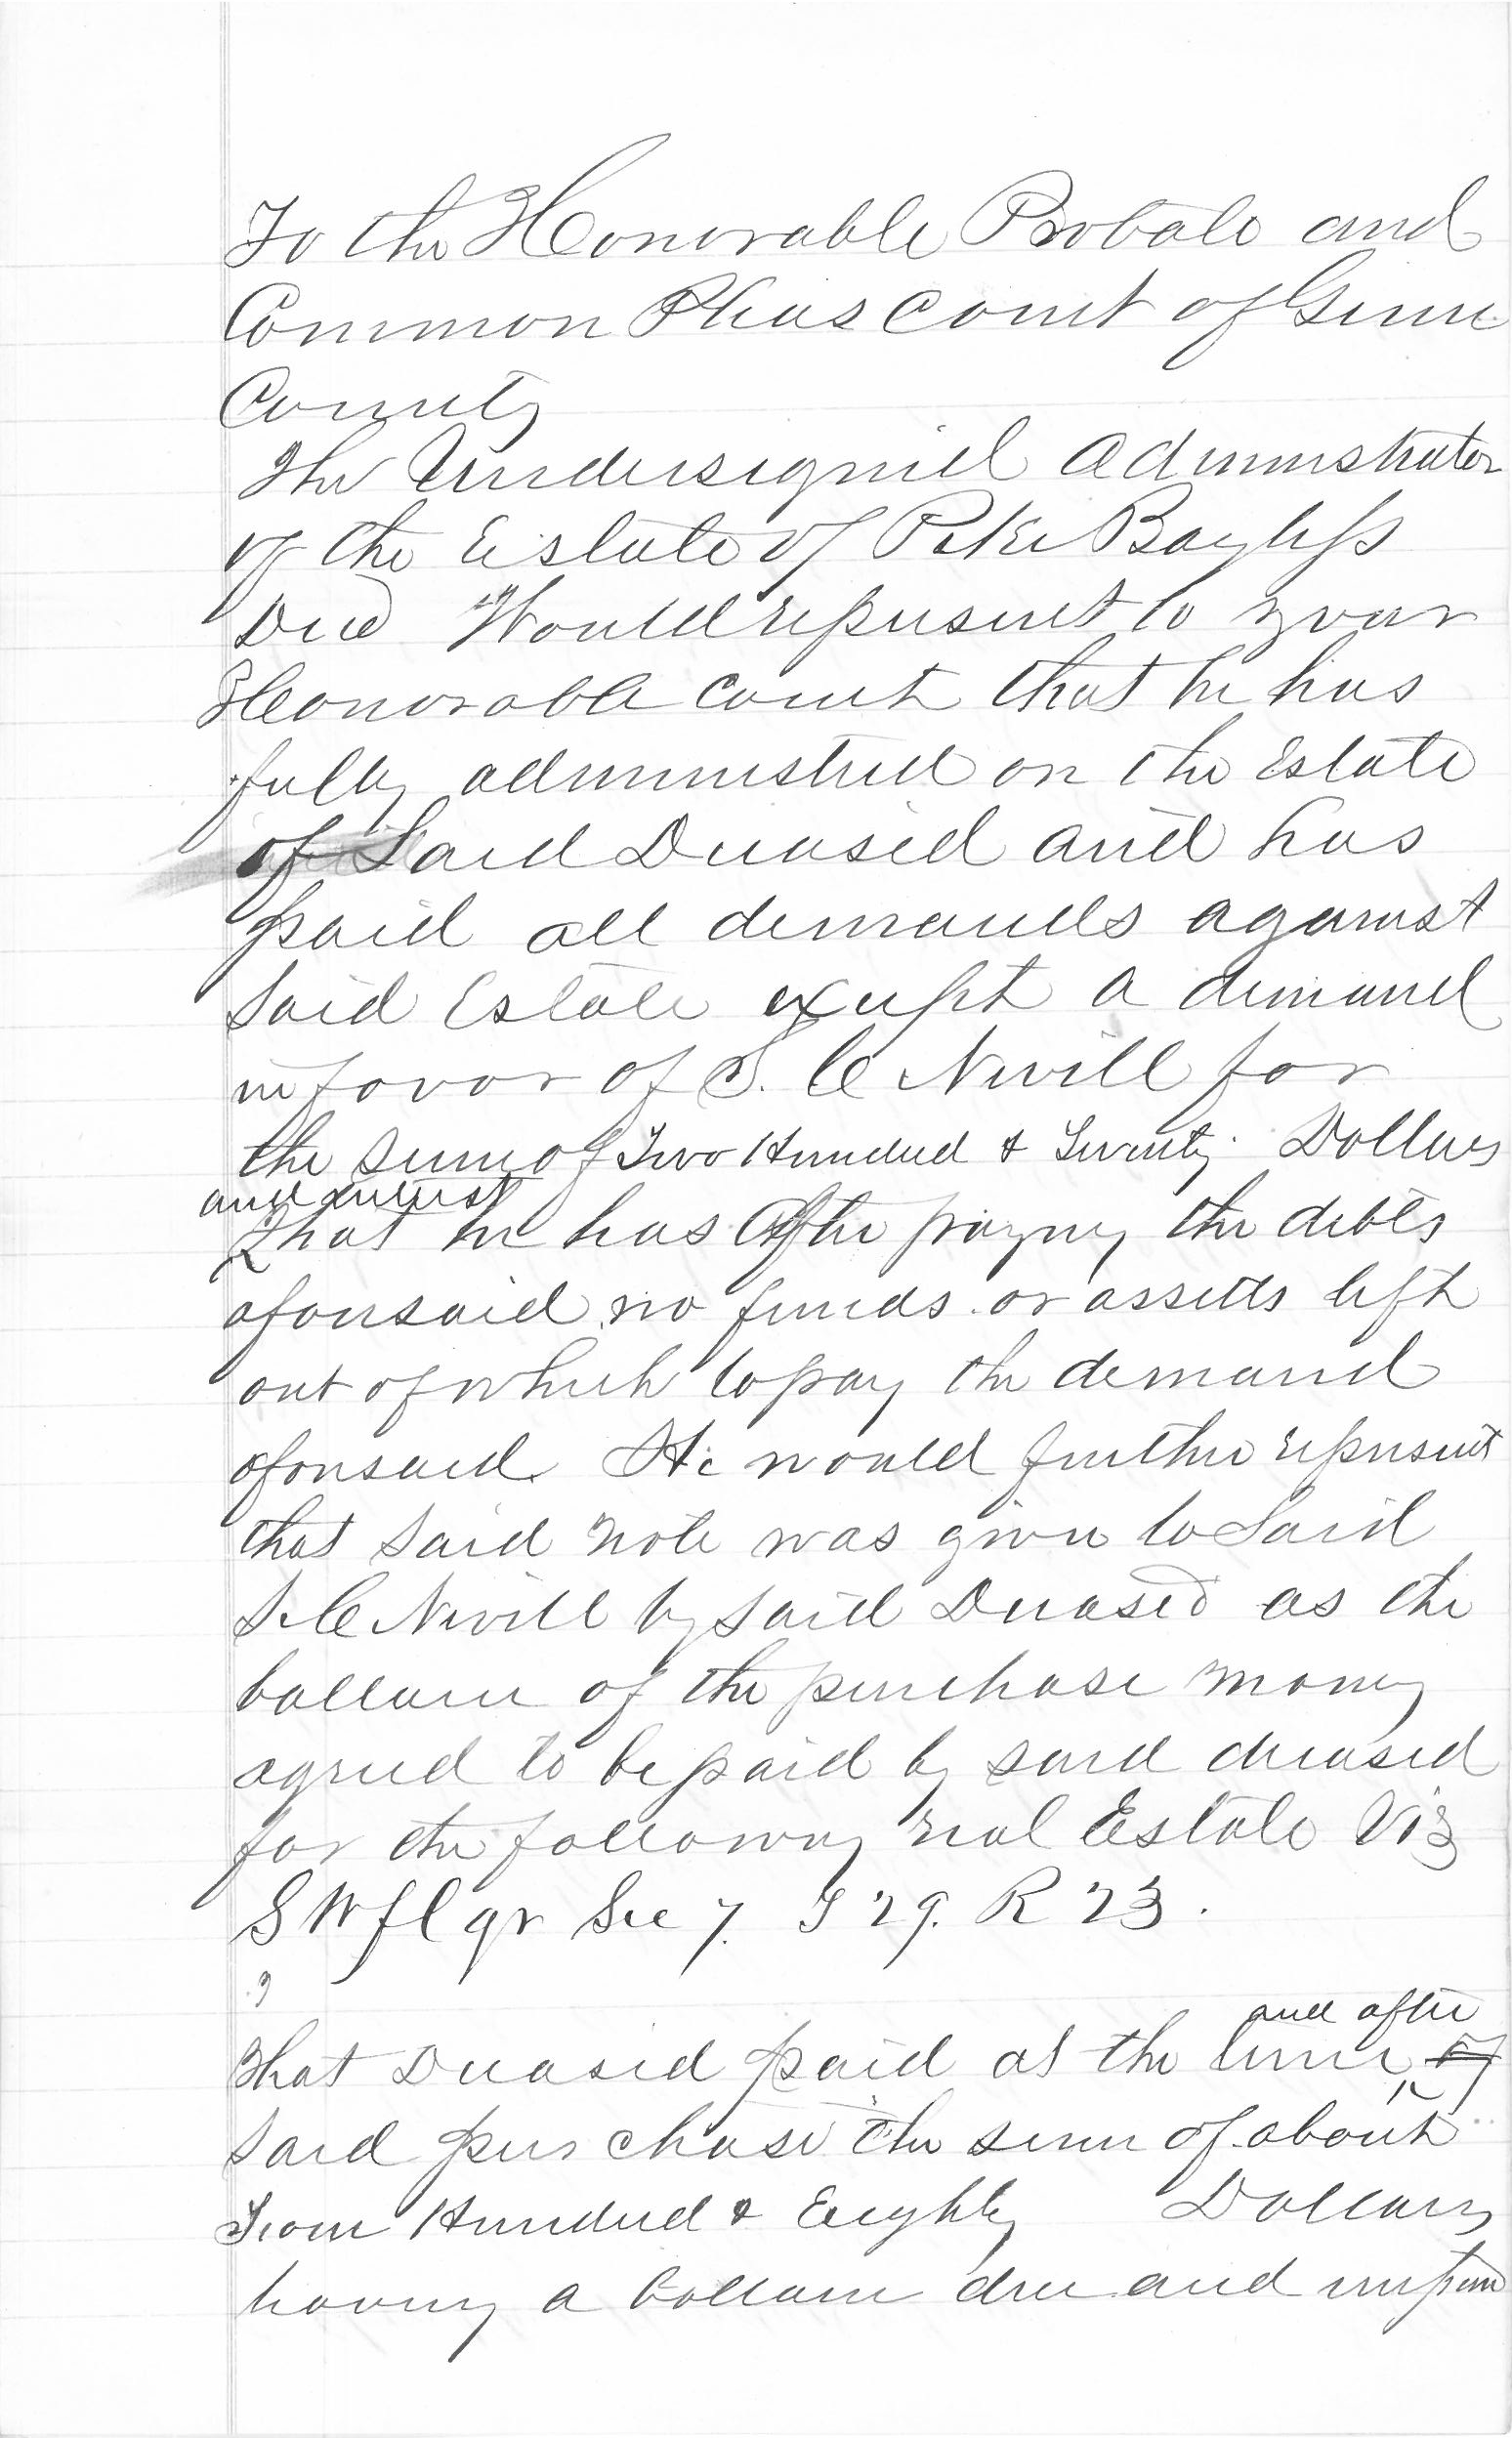 To the Honorable Probate and
Common Pleas Court of Greene
County
The Undersigned Administrator
of the Estate of Peter Bayless
Decd Would represent to your
Honorable Court that he has
fully administred on the Estate
of Said Deceased and has
paid all demands against
Said Estate except a demand
in favor of S. C Nevill for
the sum of Two Hundred & Twenty Dollars
and interest
That he has After paying the debts
aforesaid no funds or assetts left
out of which to pay the demand
aforesaid. He would further represent
that said note was given to Said
S. C Nevill by said Deceased as the
ballance of the purchase money
agreed to be paid by said deceased
for the following real Estate Viz
S W fl qr Sec 7. T 29. R 23.
and after
That Deceased paid at the time of
Said purchase the sum of about
Hundred & Eighty Dollars
having a ballance due and unpaid